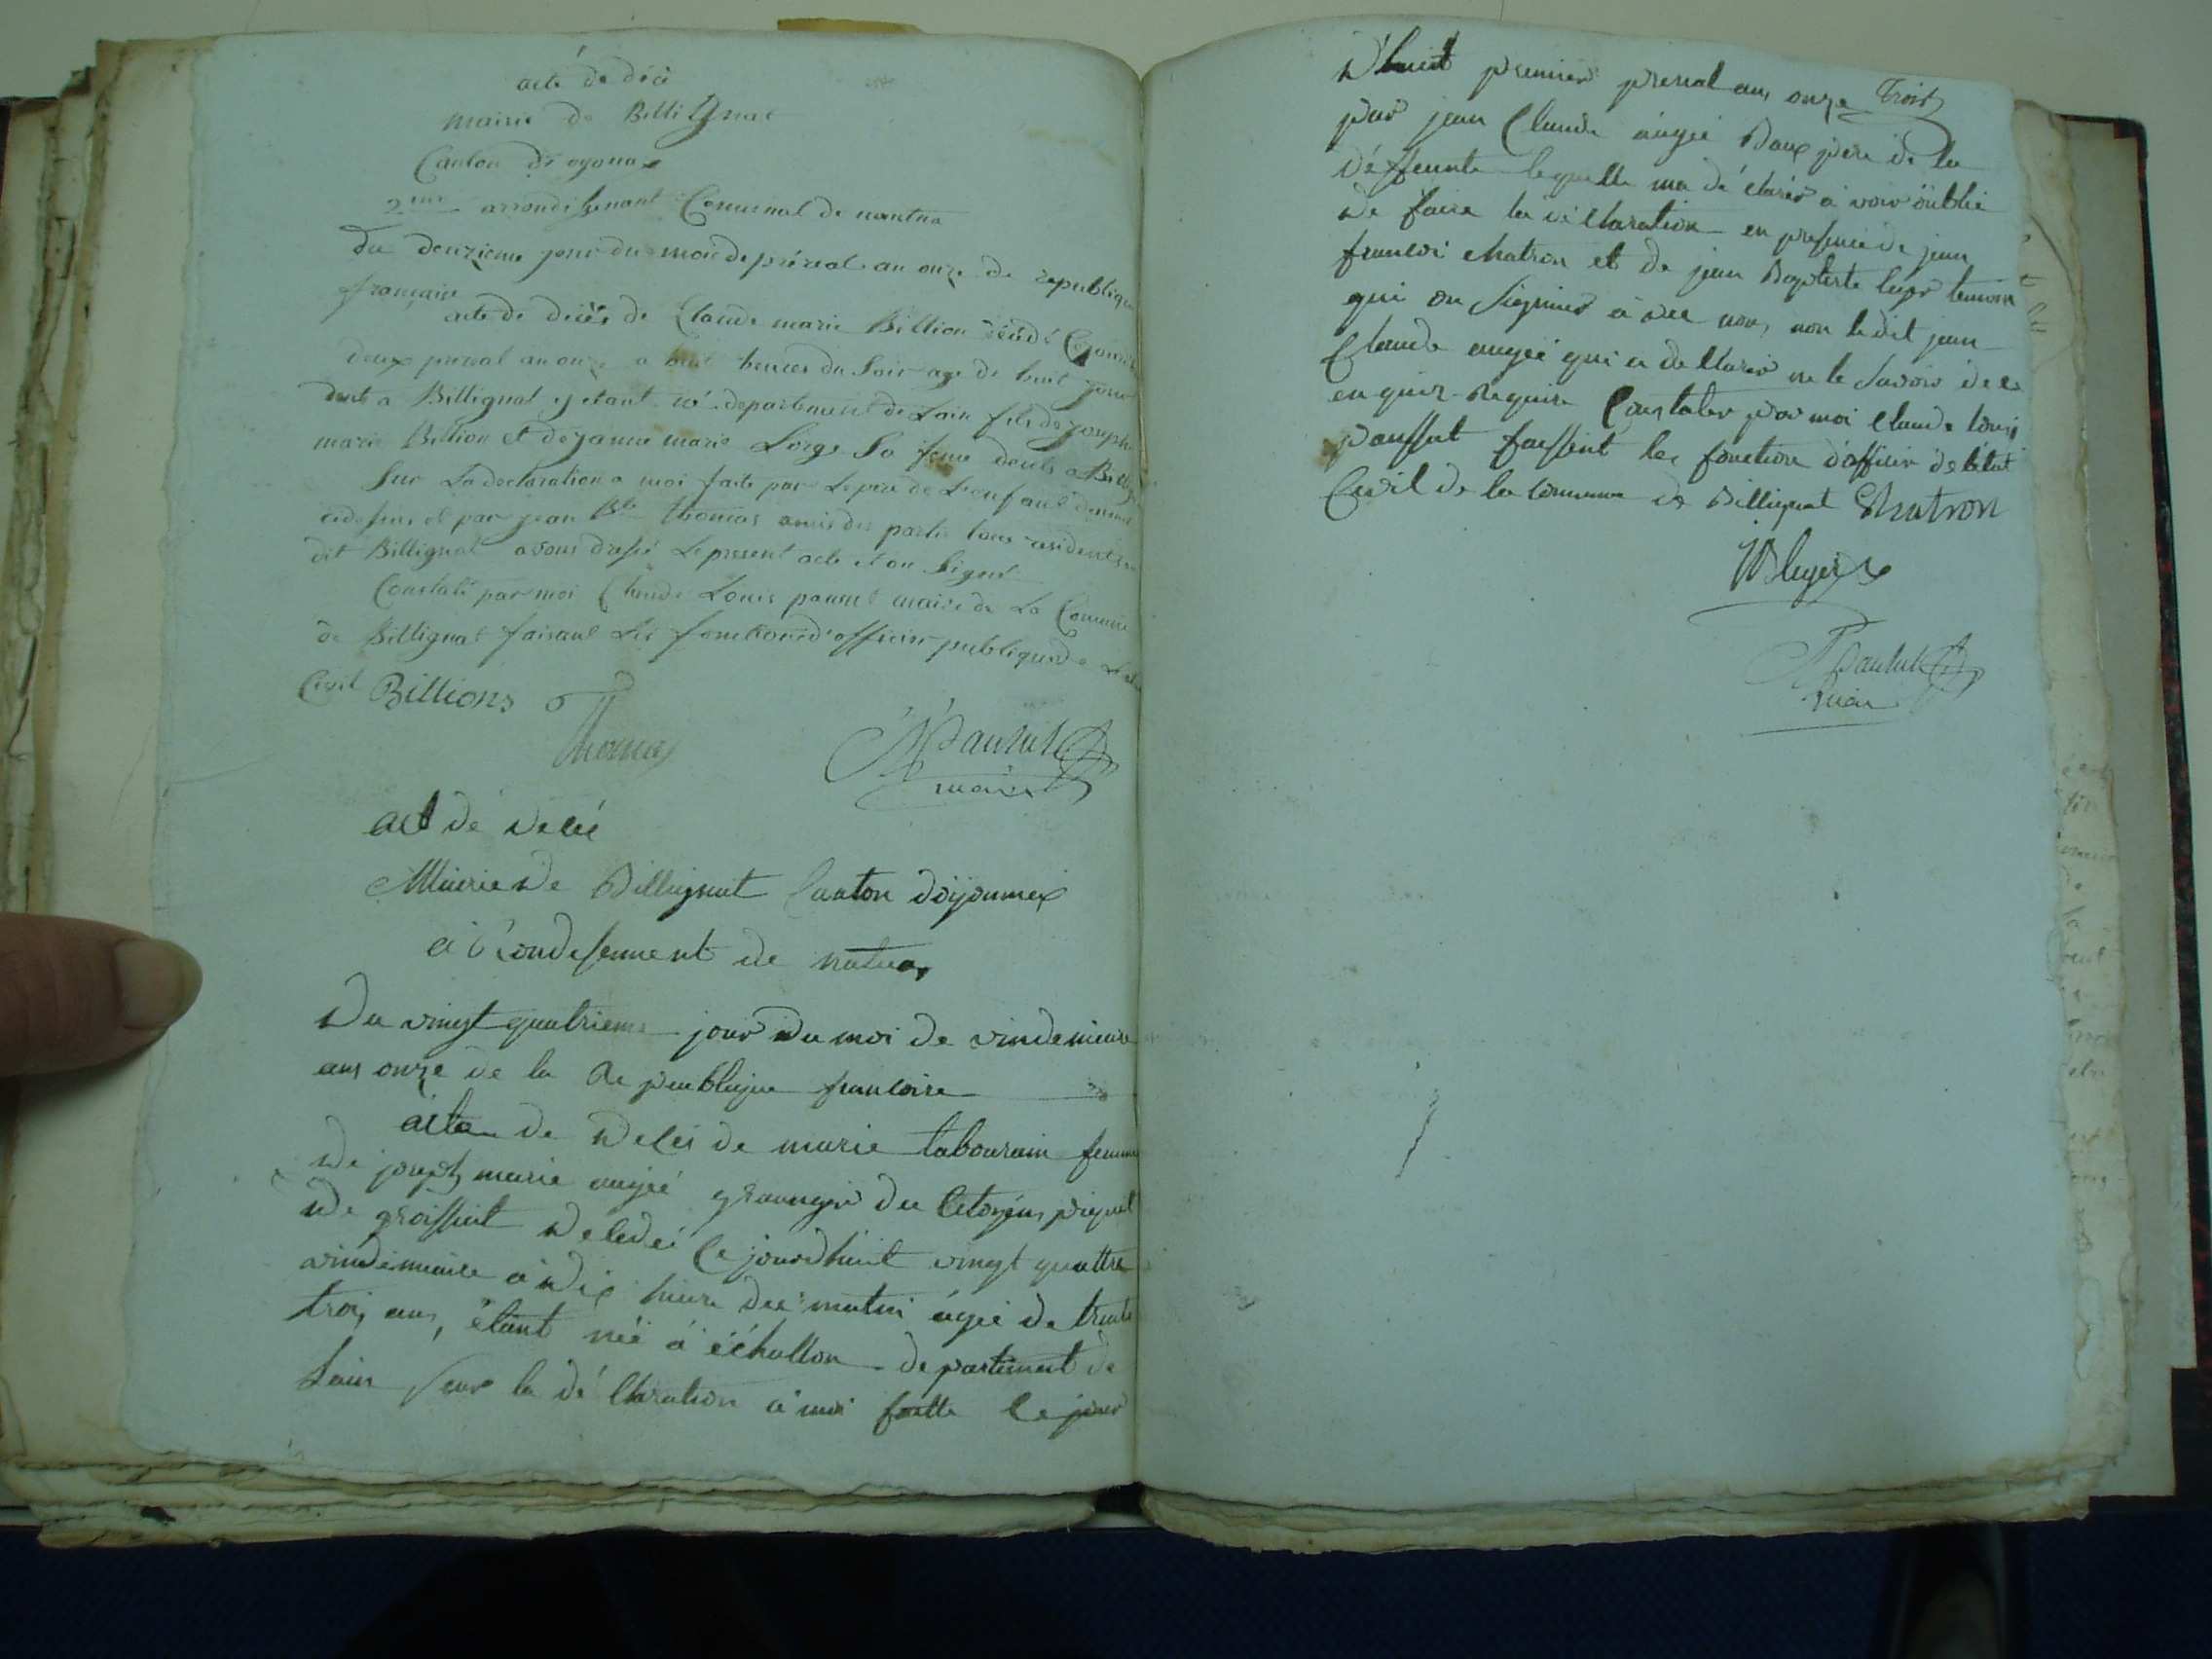 acte de décè
mairie de Billignat
Canton d'oyonax
2me arrondissemant Comunal de nantua
du deuzieme jour du mois de prérial an onze de republique
française
acte de decès de Claude marie Billion décédé
deux prerial an onze a huit heures du Soir age de huit jour
deute a Billignat y etant né departement de Lain fils de joseph
marie Billion et de janne marie Sa feme
Sur La declaration a moi faite par Le pere de L'enfant
et par jean Bte thomas amis des partis tous residents
dit Billignat avons dressé Le present acte et on Signé
Constaté par moi Claude Louis pansut maire de La Commune
de Billignat faisant Les fonctions d'officier publique de
Civil Billions
Thomas
Pansut
maire
act dé decé
Mairie de Billignat Canton d'oÿonnax
arondesement de natua
Du vingt quatrieme jour du moi de vindemiere
ans onze de la Re peublique francoise
acte de decés de marie tabourain femme
de joseph marie augée grangé du Citoyens
de groissiat décédé Ce jourdhuit vingt quattre
vindemiaire à dix heure dee matin ágée de trente
trois ans, étant née á échallon departement de
Lain Seur la dé Claration à moi faitte le jour
D'huit premier prerial ans onze trois
par jean Claude augée Baux père de la
déffeunte lequelle ma dé clarér a voir öublié
de faire la déClaration en presence de jean
francoi chatron et de jean Baptiste temoin
qui on Signiér à vec non, non le dit jean
Claude augée qui a de Clarér ne le Savoir de ce
en quer require Constater par moi Claude louis
pansut faissent les fonction d'officier de l'état
Civil de la comune de Billignat Chatron
Pansut
maire